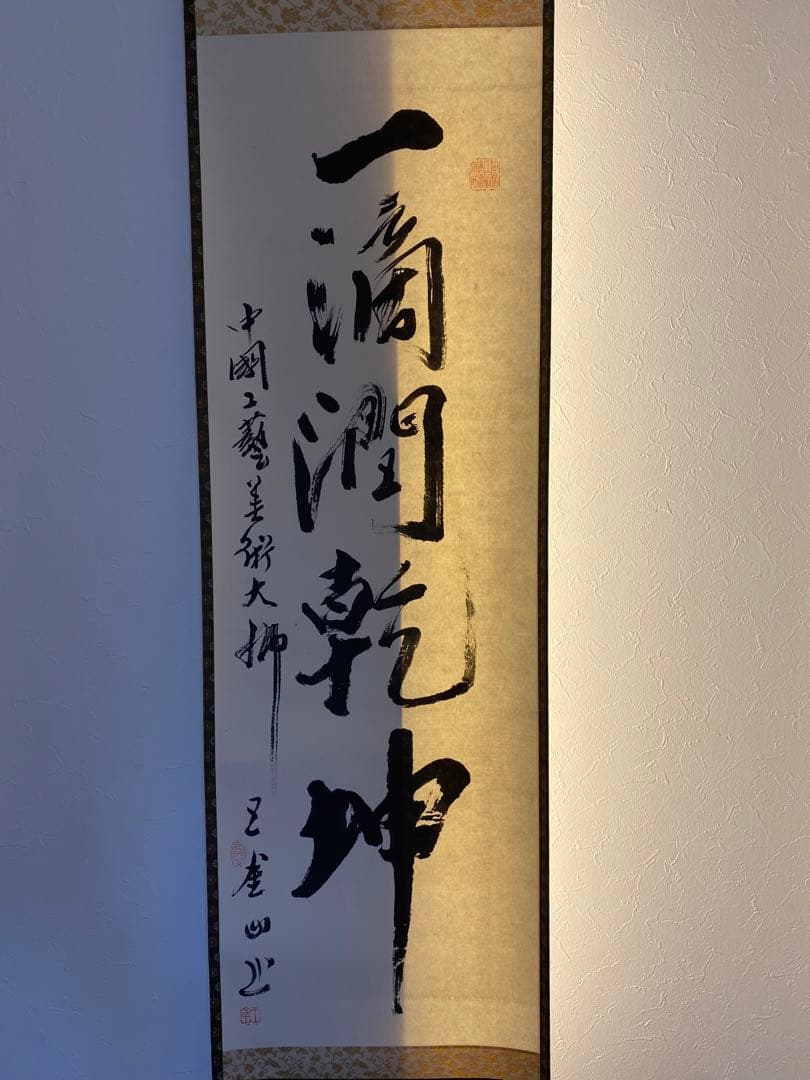 一滴潤乾坤
中國工藝美術大師
王金山